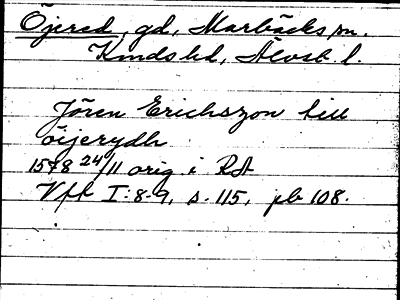 Öjered, gd, Marbäcks sn.
Kinds hd, Älvsb. l.
Jören Erichszon till
öijerydh
1578 24/11 orig i RA
Vfl I:8-9, s. 115, pb 108.